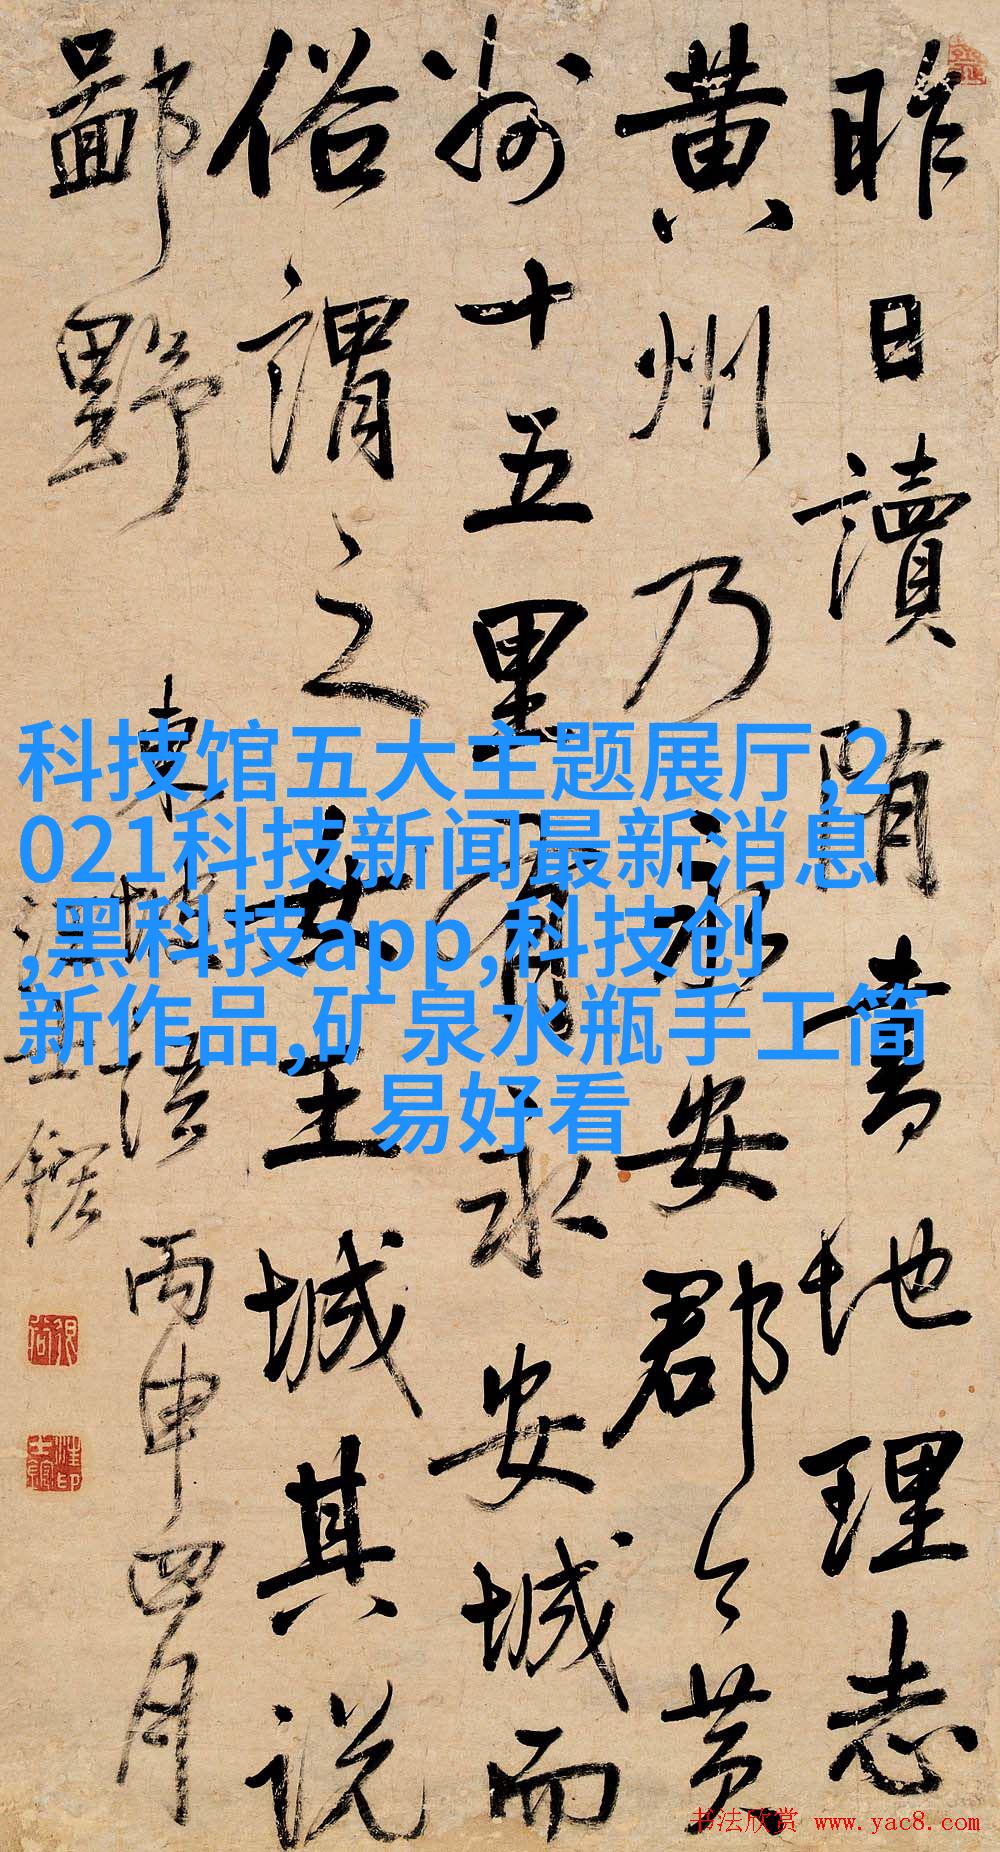 昨日讀隋書地理志
黄州乃永安郡今黄
州十五里有永安城而
俗謂之女王城其说
鄙野 東坡語 丙申四月
汪士鋐
科技馆五大主题展厅,2
021科技新闻最新消息
,黑科技app,科技创
新作品,矿泉水瓶手工简
易好看
书法欣赏 www.yac8.com